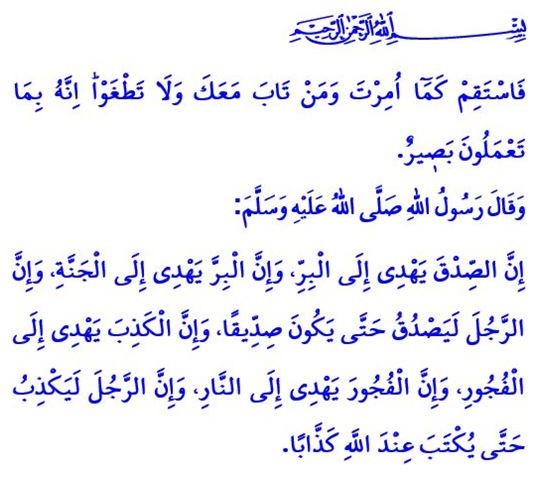 بِسْمِ اللهِ الرَّحْمٰنِ الرَّحِيمِ
فَاسْتَقِمْ كَمَٓا اُمِرْتَ وَمَنْ تَابَ مَعَكَ وَلَا تَطْغَوْاۜ اِنَّهُ بِمَا
تَعْمَلُونَ بَصٖيرٌ.
وَقَالَ رَسُولُ اللهِ صَلَّى اللهُ عَلَيْهِ وَسَلَّمَ:
إِنَّ الصِّدْقَ يَهْدِى إِلَى الْبِرِّ، وَإِنَّ الْبِرَّ يَهْدِى إِلَى الْجَنَّةِ، وَإِنَّ
الرَّجُلَ لَيَصْدُقُ حَتَّى يَكُونَ صِدِّيقًا، وَإِنَّ الْكَذِبَ يَهْدِى إِلَى
الْفُجُورِ، وَإِنَّ الْفُجُورَ يَهْدِى إِلَى النَّارِ، وَإِنَّ الرَّجُلَ لَيَكْذِبُ
حَتَّى يُكْتَبَ عِنْدَ اللَّهِ كَذَّابًا.